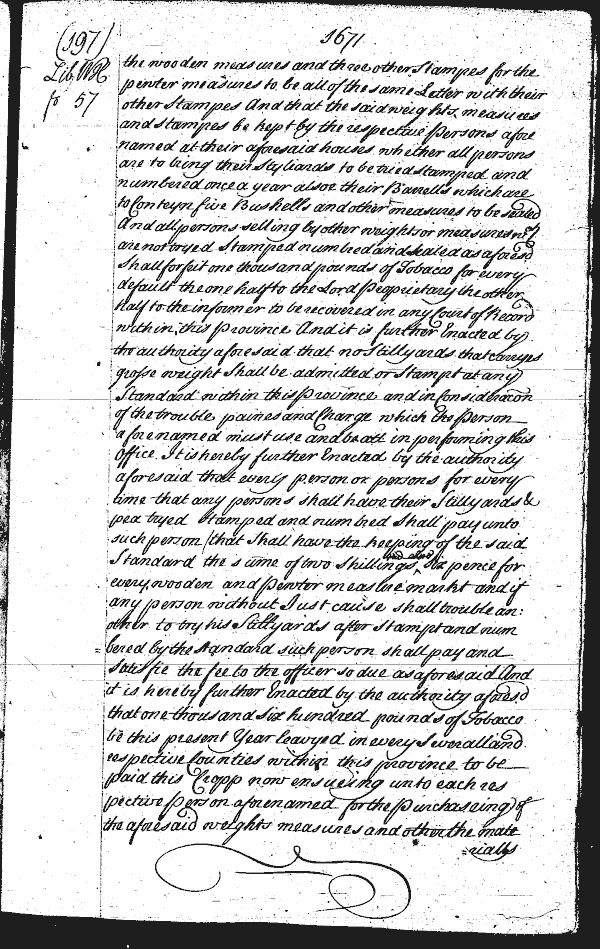 (197)
1671
Lib. WH
fo 57
the wooden measures and three other Stampes for the
pewter measures to be all of the same Letter with their
other Stampes And that the said weights measures
and stampes be kept by the respective Persons afore
named at their aforesaid houses whether all persons
are to bring their Styliards to be tried stamped and
numbered once a year alsoe their Barrells which are
to Conteyn five Bushells and other measures to be sealed
And all persons selling by other weights or measures wch
are not tryed Stamped numbred and sealed as aforesd
Shall forfeit one thousand pounds of Tobacco for every
default the one half to the Lord Proprietary the other
half to the informer to be recovered in any Court of Record
within this Province And it is further Enacted by
the authority aforesaid that no Stillyards that carryes
grosse weight Shall be admitted or Stampt at any
Standard within this Province and in Consideracon
of the trouble paines and Charge which the Person
aforenamed must use and be att in performing this
Office. It is hereby further Enacted by the authority
aforesaid that every person or persons for every
time that any persons shall have their Stillyards &
pea tryed Stamped and numbred Shall pay unto
such person (that Shall have the keeping of the said
Standard the sume of two shillings, six pence for
every wooden and Pewter measure markt and if
any person without Just cause shall trouble an:
other to try his Stillyards after Stampt and num
bered by the Standard such person shall pay and
Satisfie the fee to the officer so due as aforesaid And
it is hereby further Enacted by the authority aforesd
that one thousand Six hundred pounds of Tobacco
be this present Year leavyed in every Severall and
respective Counties within this province to be
paid this Cropp now ensueing unto each res
pective Person aforenamed for the Purchaseing of
the aforesaid weights measures and other the mate
=rialls